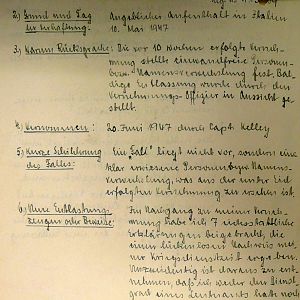 2) Grund und Tag Angeblicher Aufenthalt in Italien
der Verhaftung: 10. Mai 1947
3) Warum Rücksprache: Die vor 10 Wochen erfolgte Verneh-
mung stellte einwandfreie Personen-
bzw. Namensverwechslung fest. Bal-
dige Entlassung wurde durch den
Vernehmungs-Offizier in Aussicht ge-
stellt.
4) Vernommen: 20. Juni 1947 durch Capt. Kelley
5) Kurze Schilderung Ein „Fall" liegt nicht vor, sondern eine
des Falles: klar erwiesene Personen bzw. Namens-
verwechslung, was aus der unter Eid
erfolgten Vernehmung zu ersehen ist.
6) Neue Entlastungs- Im Nachgang zu meiner Verneh-
zeugen oder Beweise: mung habe ich 7 eidesstattliche
Erklärungen beigebracht, die
einen lückenlosen Nachweis mei-
ner Kriegsdienstzeit ergeben.
Unzweideutig ist daraus zu ent-
nehmen, daß ich weder den Dienst-
grad eines Leutnants hatte noch